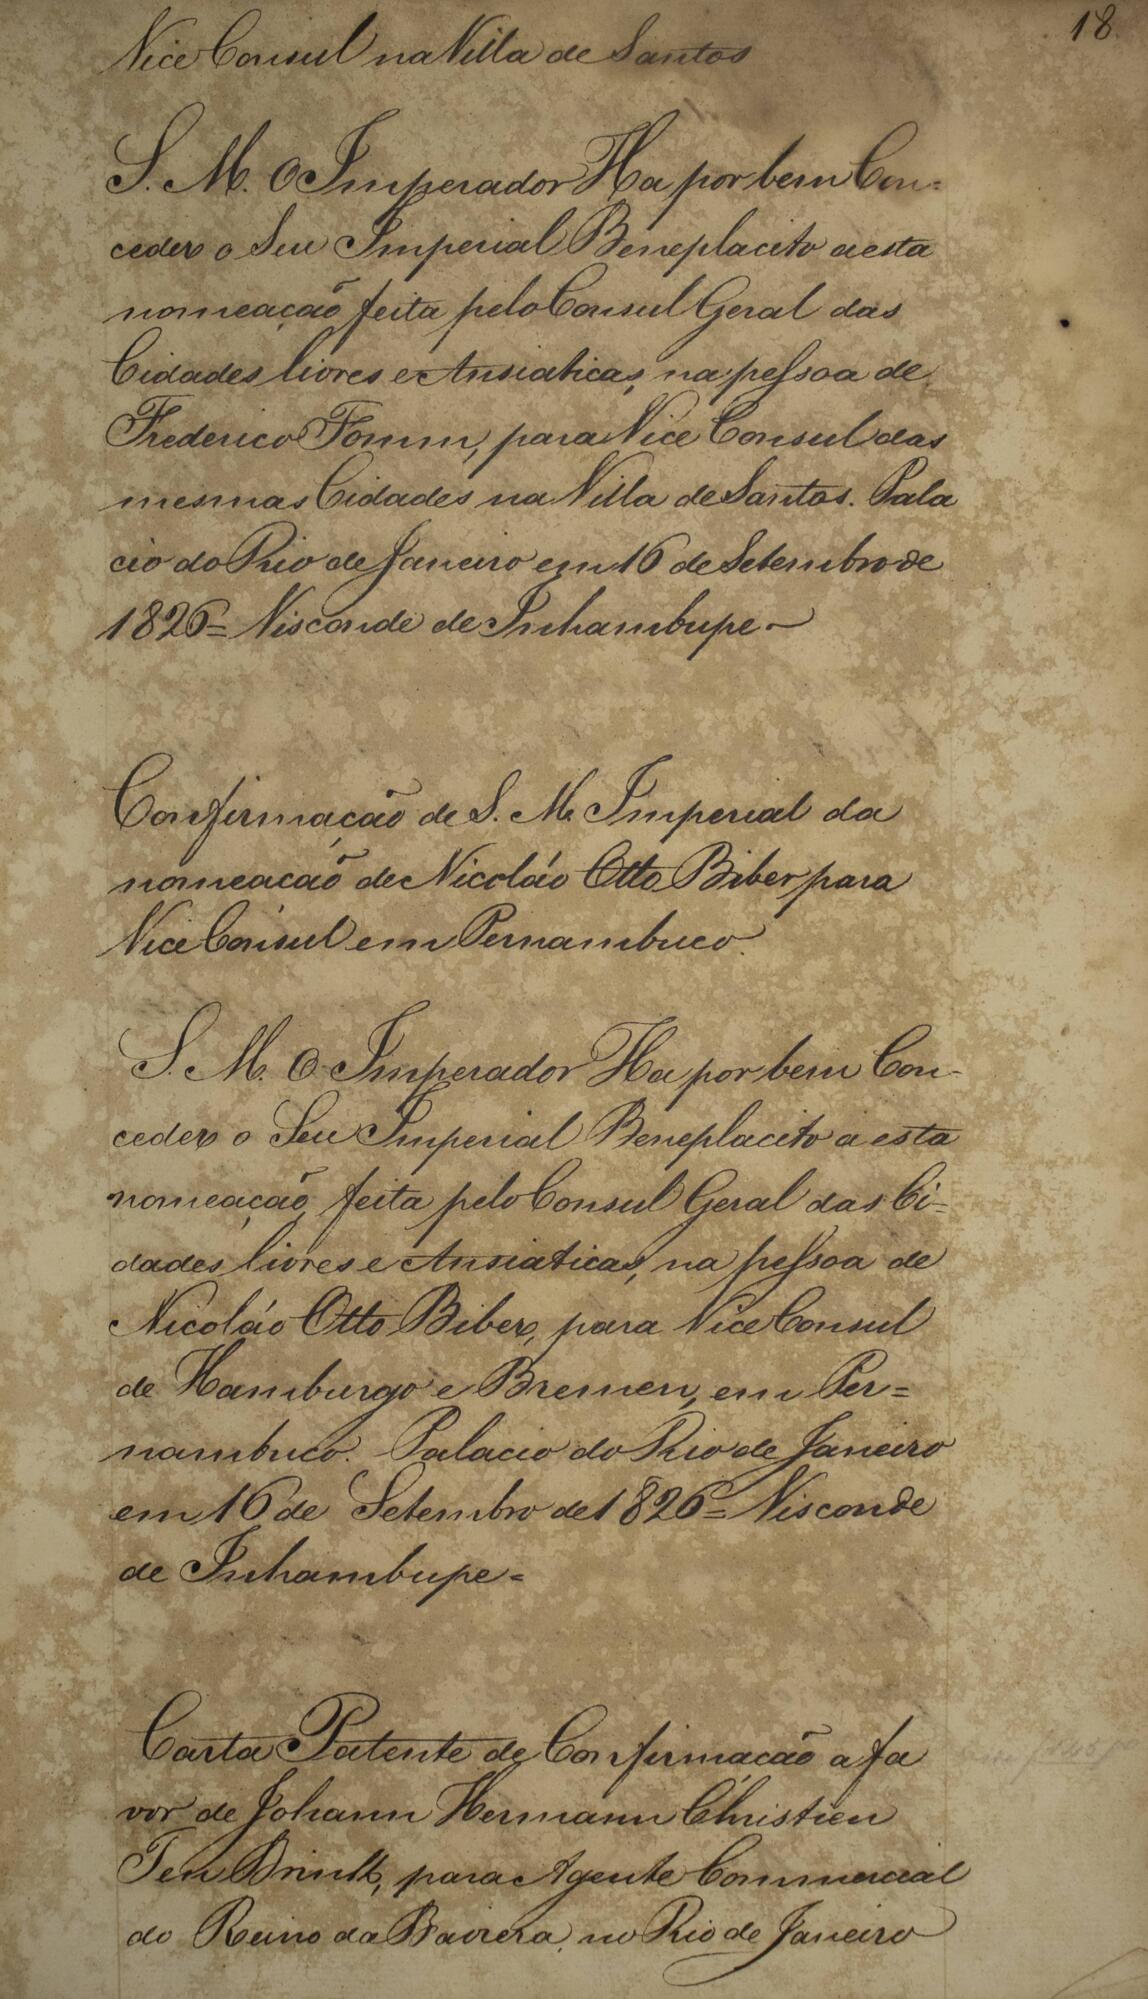 18.
Vice Consul na Villa de Santos
S. M. O Imperador Ha por bem Con=
ceder o Seu Imperial Beneplacito a esta
nomeação feita pelo Consul Geral das
Cidades livres e Ansiaticas, na pessoa de
Frederico Fomm, para Vice Consul das
mesmas Cidades na Villa de Santos. Pala
cio do Rio de Janeiro em 16 de Setembro de
1826= Visconde de Inhambupe~
Confirmação de S. M. Imperial da
nomeacaõ de Nicoláo Otto Biber para
Vice Consul em Pernambuco.
S. M. O Imperador Ha por bem Con-
ceder o Seu Imperial Beneplacito a esta
nomeação, feita pelo Consul Geral das Ci=
dades livres e Ansiaticas, na pessoa de
Nicoláo Otto Biber, para Vice Consul
de Hamburgo e Bremen, em Per=
nambuco. Palacio do Rio de Janeiro
em 16 de Setembro de 1826= Visconde
de Inhambupe=
Carta Patente de Confirmação a fa
vor de Johann Hermann Christien
Ten Brink, para Agente Commercial
do Reino da Baviera, no Rio de Janeiro